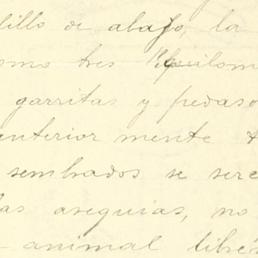 dillo de abajo, la
omo tres Kilom
garritas y pedaso
anterior mente
sembrados se sere
las asequias, no
animal libre